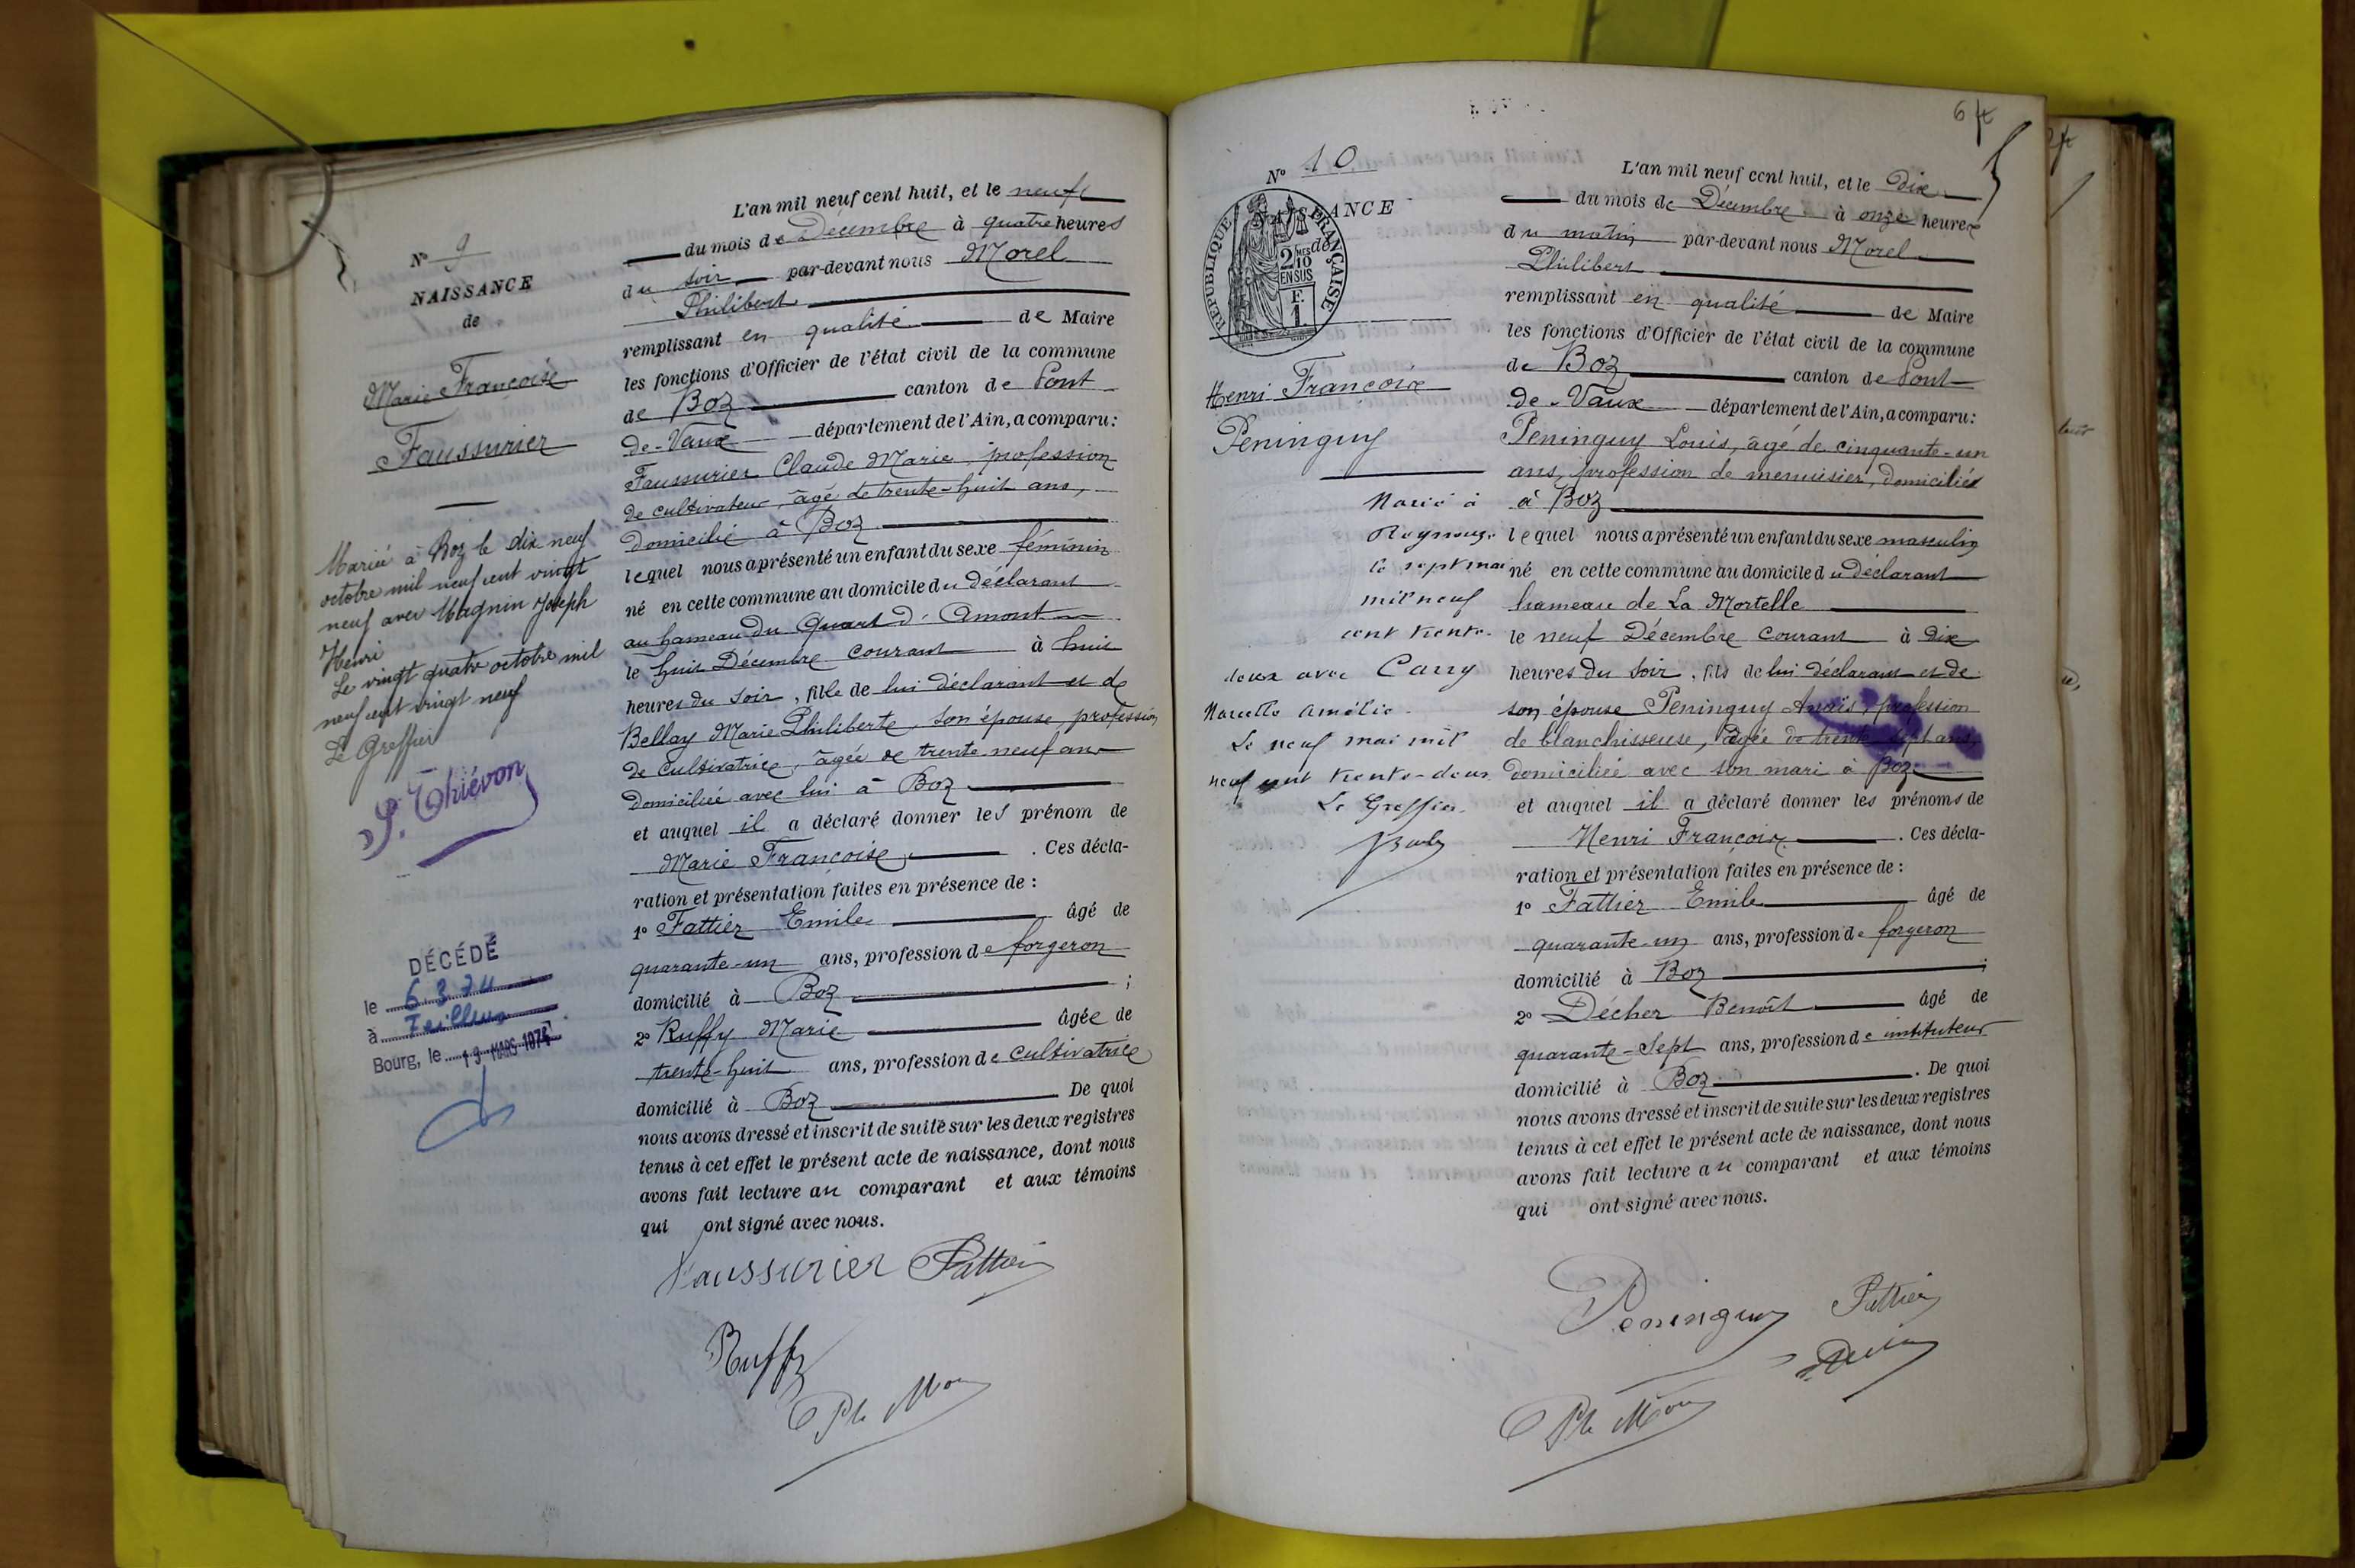 N° 9
NAISSANCE
de
Marie Françoise
Faussurier
Mariée à Boz le dix neuf
octobre mil neuf cent vingt
neuf avec Magnin Joseph
Henri
Le vingt quatre octobre mil
neuf cent vingt neuf
Le Greffier
P. Thiévon
DÉCÉDÉ
le 6.3.74
à
Bourg, le 19 MARS 1974
L'an mil neuf cent huit, et le neuf
du mois de Décembre à quatre heures
du soir par-devant nous Morel
Philibert
remplissant en qualité de Maire
les fonctions d'Officier de l'état civil de la commune
de Boz canton de Pont
de-Vaux département de l'Ain, a comparu:
Faussurier Claude Marie, profession
de cultivateur, âgé de trente-huit ans,
domicilié à Boz
lequel nous a présenté un enfant du sexe féminin
né en cette commune au domicile du déclarant
au hameau du Quart d'Amont
le huit Décembre courant à huit
heures du soir, fille de lui déclarant et de
Bellay Marie Philiberte, son épouse, profession
de cultivatrice, âgée de trente neuf ans
domiciliée avec lui à Boz
et auquel il a déclaré donner les prénom de
Marie Françoise. Ces décla-
ration et présentation faites en présence de :
1° Fattier Emile âgé de
quarante-un ans, profession de forgeron
domicilié à Boz ;
2° Ruffy Marie âgée de
trente-huit ans, profession de cultivatrice
domicilié à Boz De quoi
nous avons dressé et inscrit de suite sur les deux registres
tenus à cet effet le présent acte de naissance, dont nous
avons fait lecture au comparant et aux témoins
qui ont signé avec nous.
Faussurier Fattier
Ruffy
Ph Morel
64
N° 10
NAISSANCE
de
RÉPUBLIQUE FRANÇAISE
2 MES 10
EN SUS
F.
1
Henri François
Peninguy
Marié à
le sept mai
mil neuf
cent trente-
deux avec Carry
Marcelle Amélie.
Le neuf mai mil
neuf cent trente-deux
Le Greffier.
L'an mil neuf cent huit, et le Dix
du mois de Décembre à onze heures
du matin par-devant nous Morel
Philibert
remplissant en qualité de Maire
les fonctions d'Officier de l'état civil de la commune
de Boz canton de Pont
de-Vaux département de l'Ain, a comparu:
Peninguy Louis, âgé de cinquante-un
ans, profession de menuisier, domicilié
à Boz
lequel nous a présenté un enfant du sexe masculin
né en cette commune au domicile du déclarant
hameau de La Mortelle
le neuf Décembre courant à dix
heures du soir, fils de lui déclarant et de
son épouse Peninguy Anaïs, profession
de blanchisseuse, âgée de trente sept ans,
domiciliée avec son mari à Boz
et auquel il a déclaré donner les prénoms de
Henri François. Ces décla-
ration et présentation faites en présence de :
1° Fattier Emile âgé de
quarante-un ans, profession de forgeron
domicilié à Boz ;
2° Décher Benoît âgé de
quarante-sept ans, profession de instituteur
domicilié à Boz. De quoi
nous avons dressé et inscrit de suite sur les deux registres
tenus à cet effet le présent acte de naissance, dont nous
avons fait lecture au comparant et aux témoins
qui ont signé avec nous.
Peninguy Fattier
Ph Morel